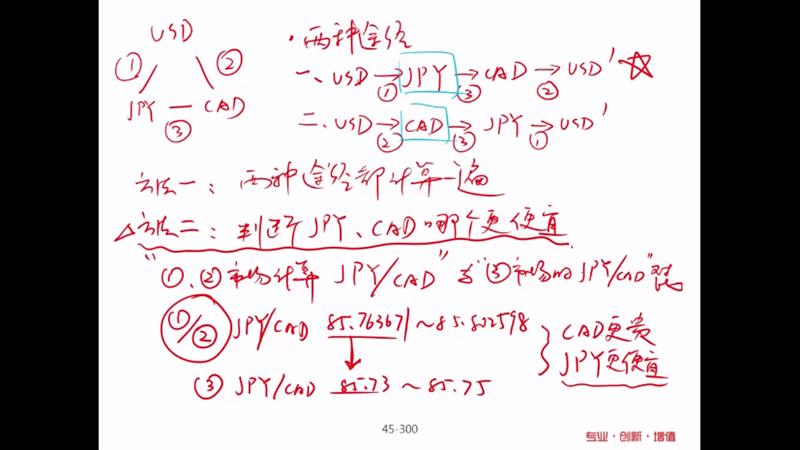 USD
① ②
JPY — CAD
③
· 两种途经
一、USD → JPY → CAD → USD' ☆
① ③ ②
二、USD → CAD → JPY → USD'
② ③ ①
方法一：两种途经都计算一遍
△方法二：判断 JPY、CAD 哪个更便宜
"①、②市场计算 JPY/CAD" 与 "③市场的 JPY/CAD"
①/② JPY/CAD 85.763671 ~ 85.802598
③ JPY/CAD 85.73 ~ 85.75
CAD更贵
JPY更便宜
45-300
专业·创新·增值